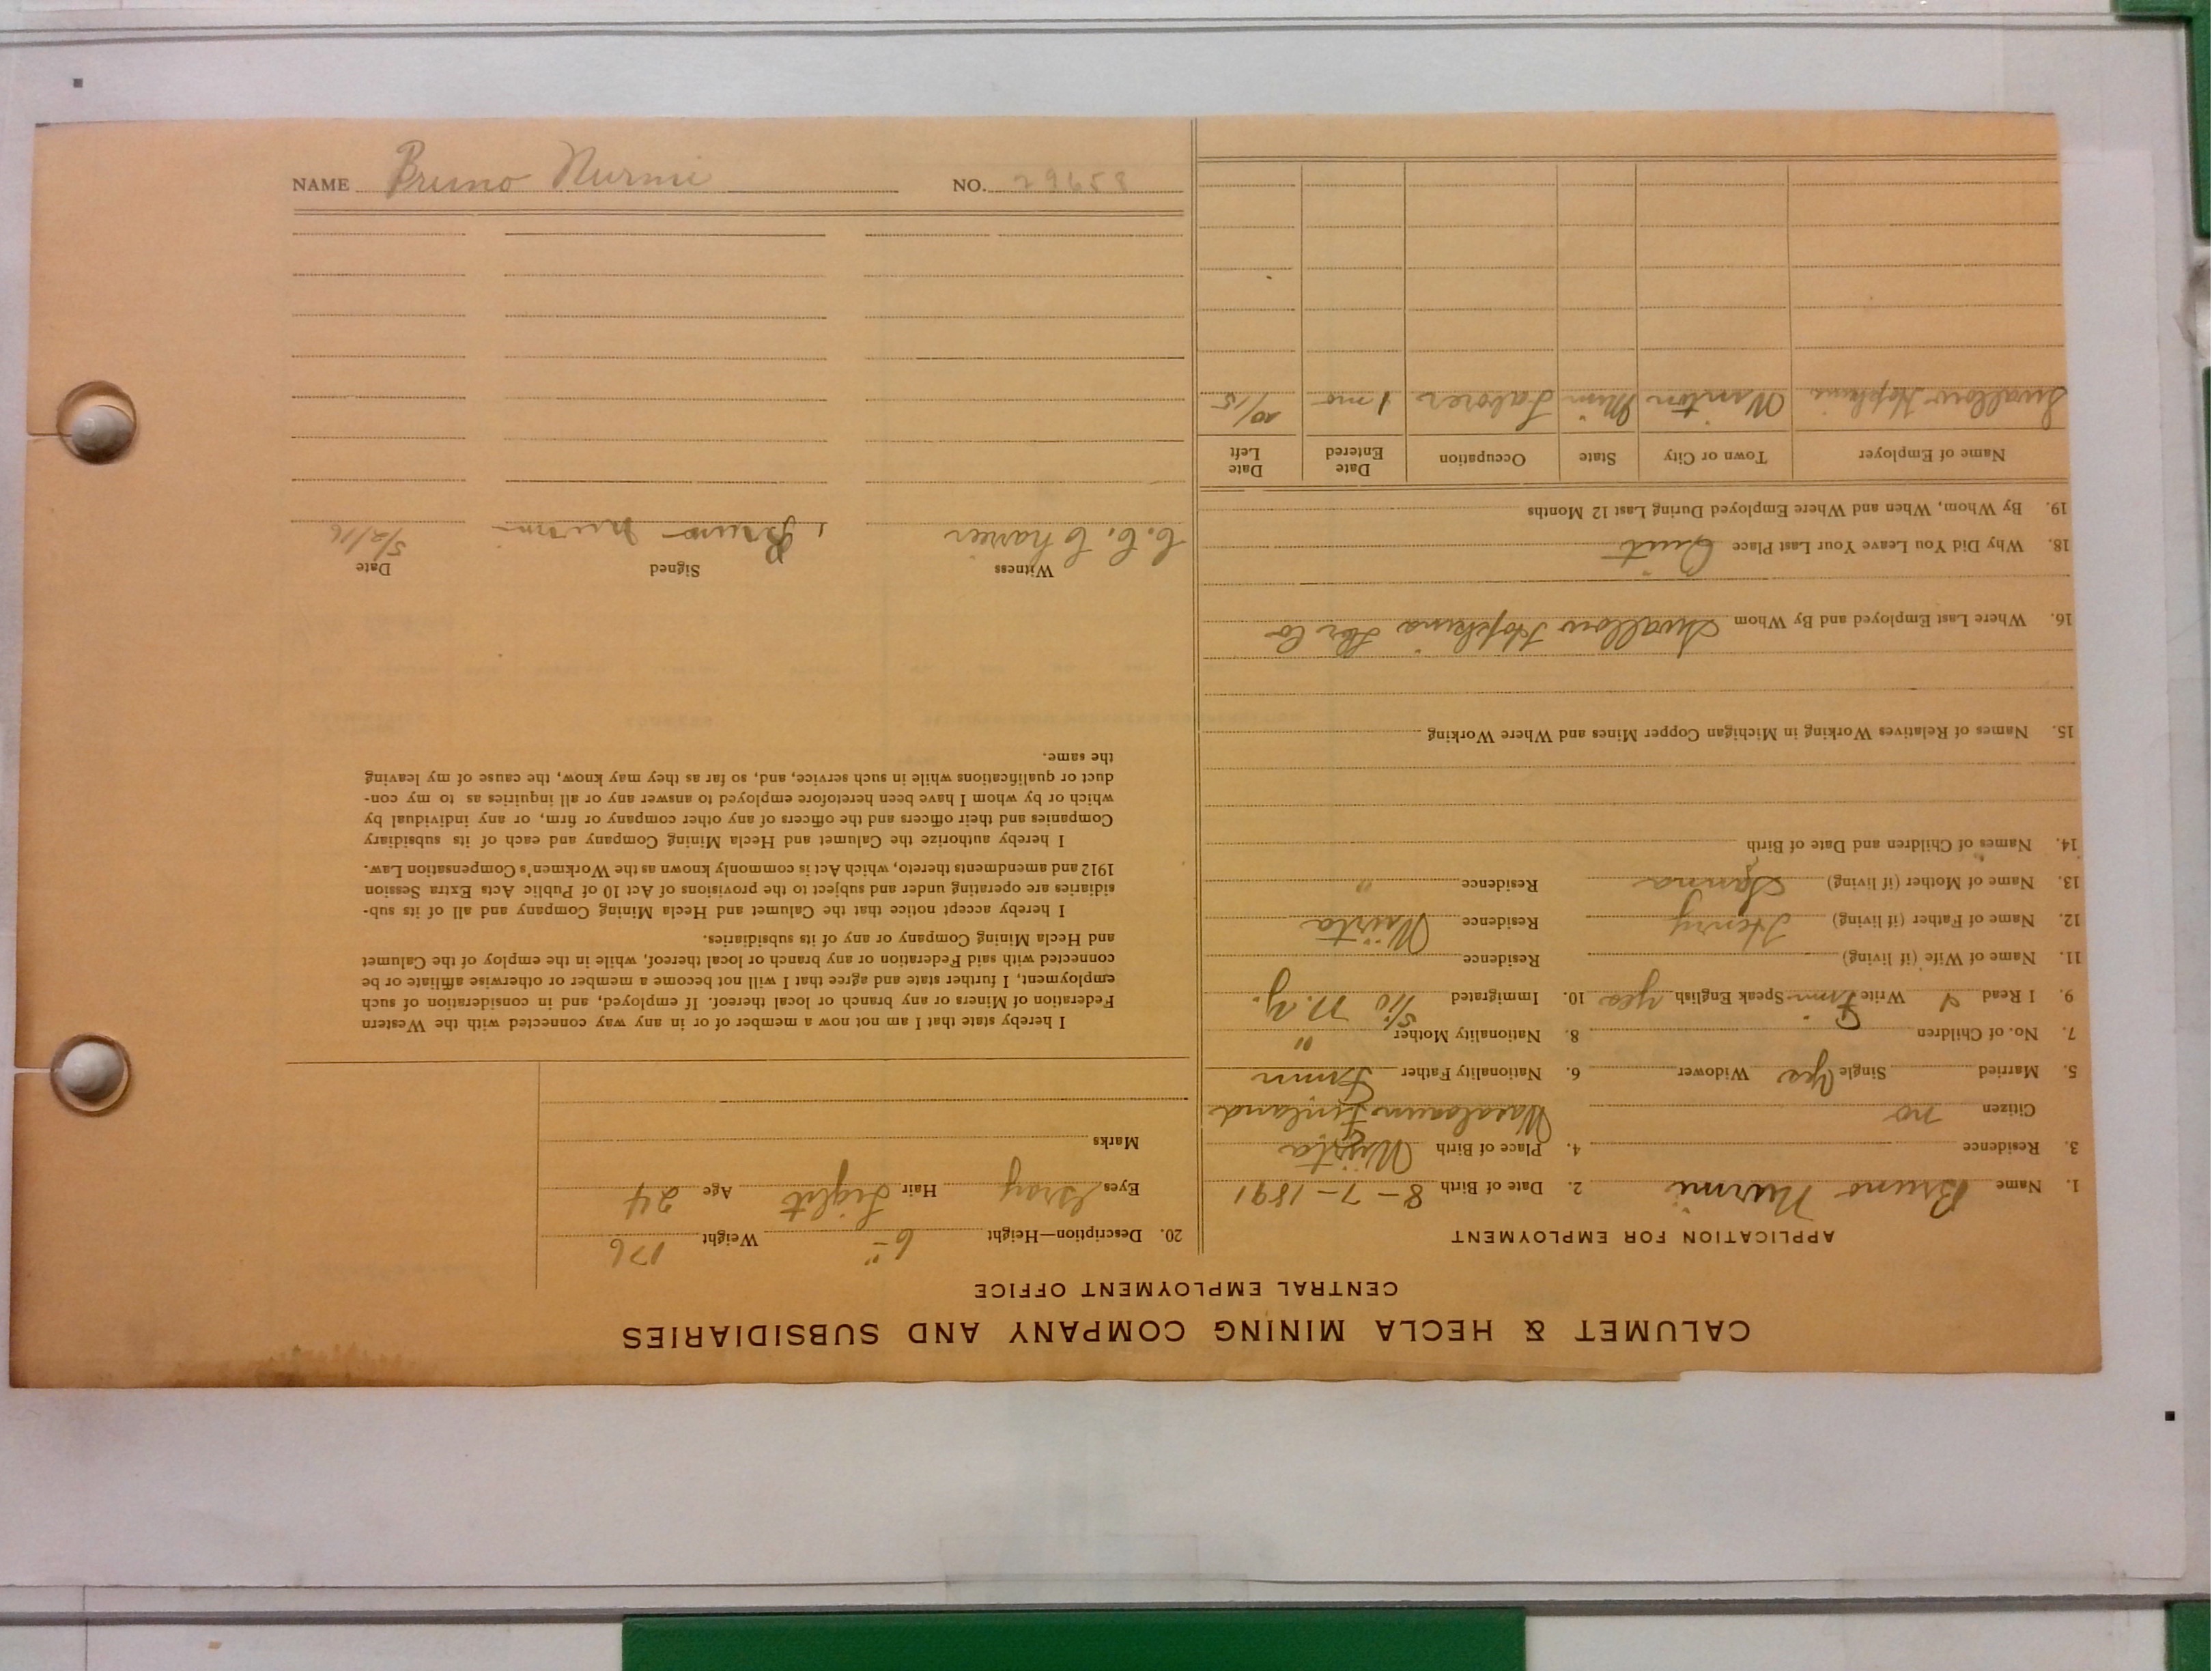 CALUMET & HECLA MINING COMPANY AND SUBSIDIARIES
CENTRAL EMPLOYMENT OFFICE
APPLICATION FOR EMPLOYMENT
1. Name Bruno Nurmi 2. Date of Birth 8-7-1891
3. Residence 4. Place of Birth
Citizen no Finland
5. Married Single Yes Widower 6. Nationality Father Finn
7. No. of Children 8. Nationality Mother "
9. I Read Write Finn Speak English yes 10. Immigrated 5/10 N.Y.
11. Name of Wife (if living) Residence
12. Name of Father (if living) Henry Residence
13. Name of Mother (if living) Residence "
14. Names of Children and Date of Birth
15. Names of Relatives Working in Michigan Copper Mines and Where Working
16. Where Last Employed and By Whom Swallow Hopkins Co
18. Why Did You Leave Your Last Place Quit
19. By Whom, When and Where Employed During Last 12 Months
Name of Employer Town or City State Occupation Date Entered Date Left
Swallow Hopkins Winton Minn Laborer 1 mo 10/15
20. Description—Height 6- Weight 176
Eyes Gray Hair Light Age 24
Marks
I hereby state that I am not now a member of or in any way connected with the Western
Federation of Miners or any branch or local thereof. If employed, and in consideration of such
employment, I further state and agree that I will not become a member or otherwise affiliate or be
connected with said Federation or any branch or local thereof, while in the employ of the Calumet
and Hecla Mining Company or any of its subsidiaries.
I hereby accept notice that the Calumet and Hecla Mining Company and all of its sub-
sidiaries are operating under and subject to the provisions of Act 10 of Public Acts Extra Session
1912 and amendments thereto, which Act is commonly known as the Workmen's Compensation Law.
I hereby authorize the Calumet and Hecla Mining Company and each of its subsidiary
Companies and their officers and the officers of any other company or firm, or any individual by
which or by whom I have been heretofore employed to answer any or all inquiries as to my con-
duct or qualifications while in such service, and, so far as they may know, the cause of my leaving
the same.
Witness Signed Date
C. C. Bruno Nurmi 5/2/16
NAME Bruno Nurmi NO. 29658